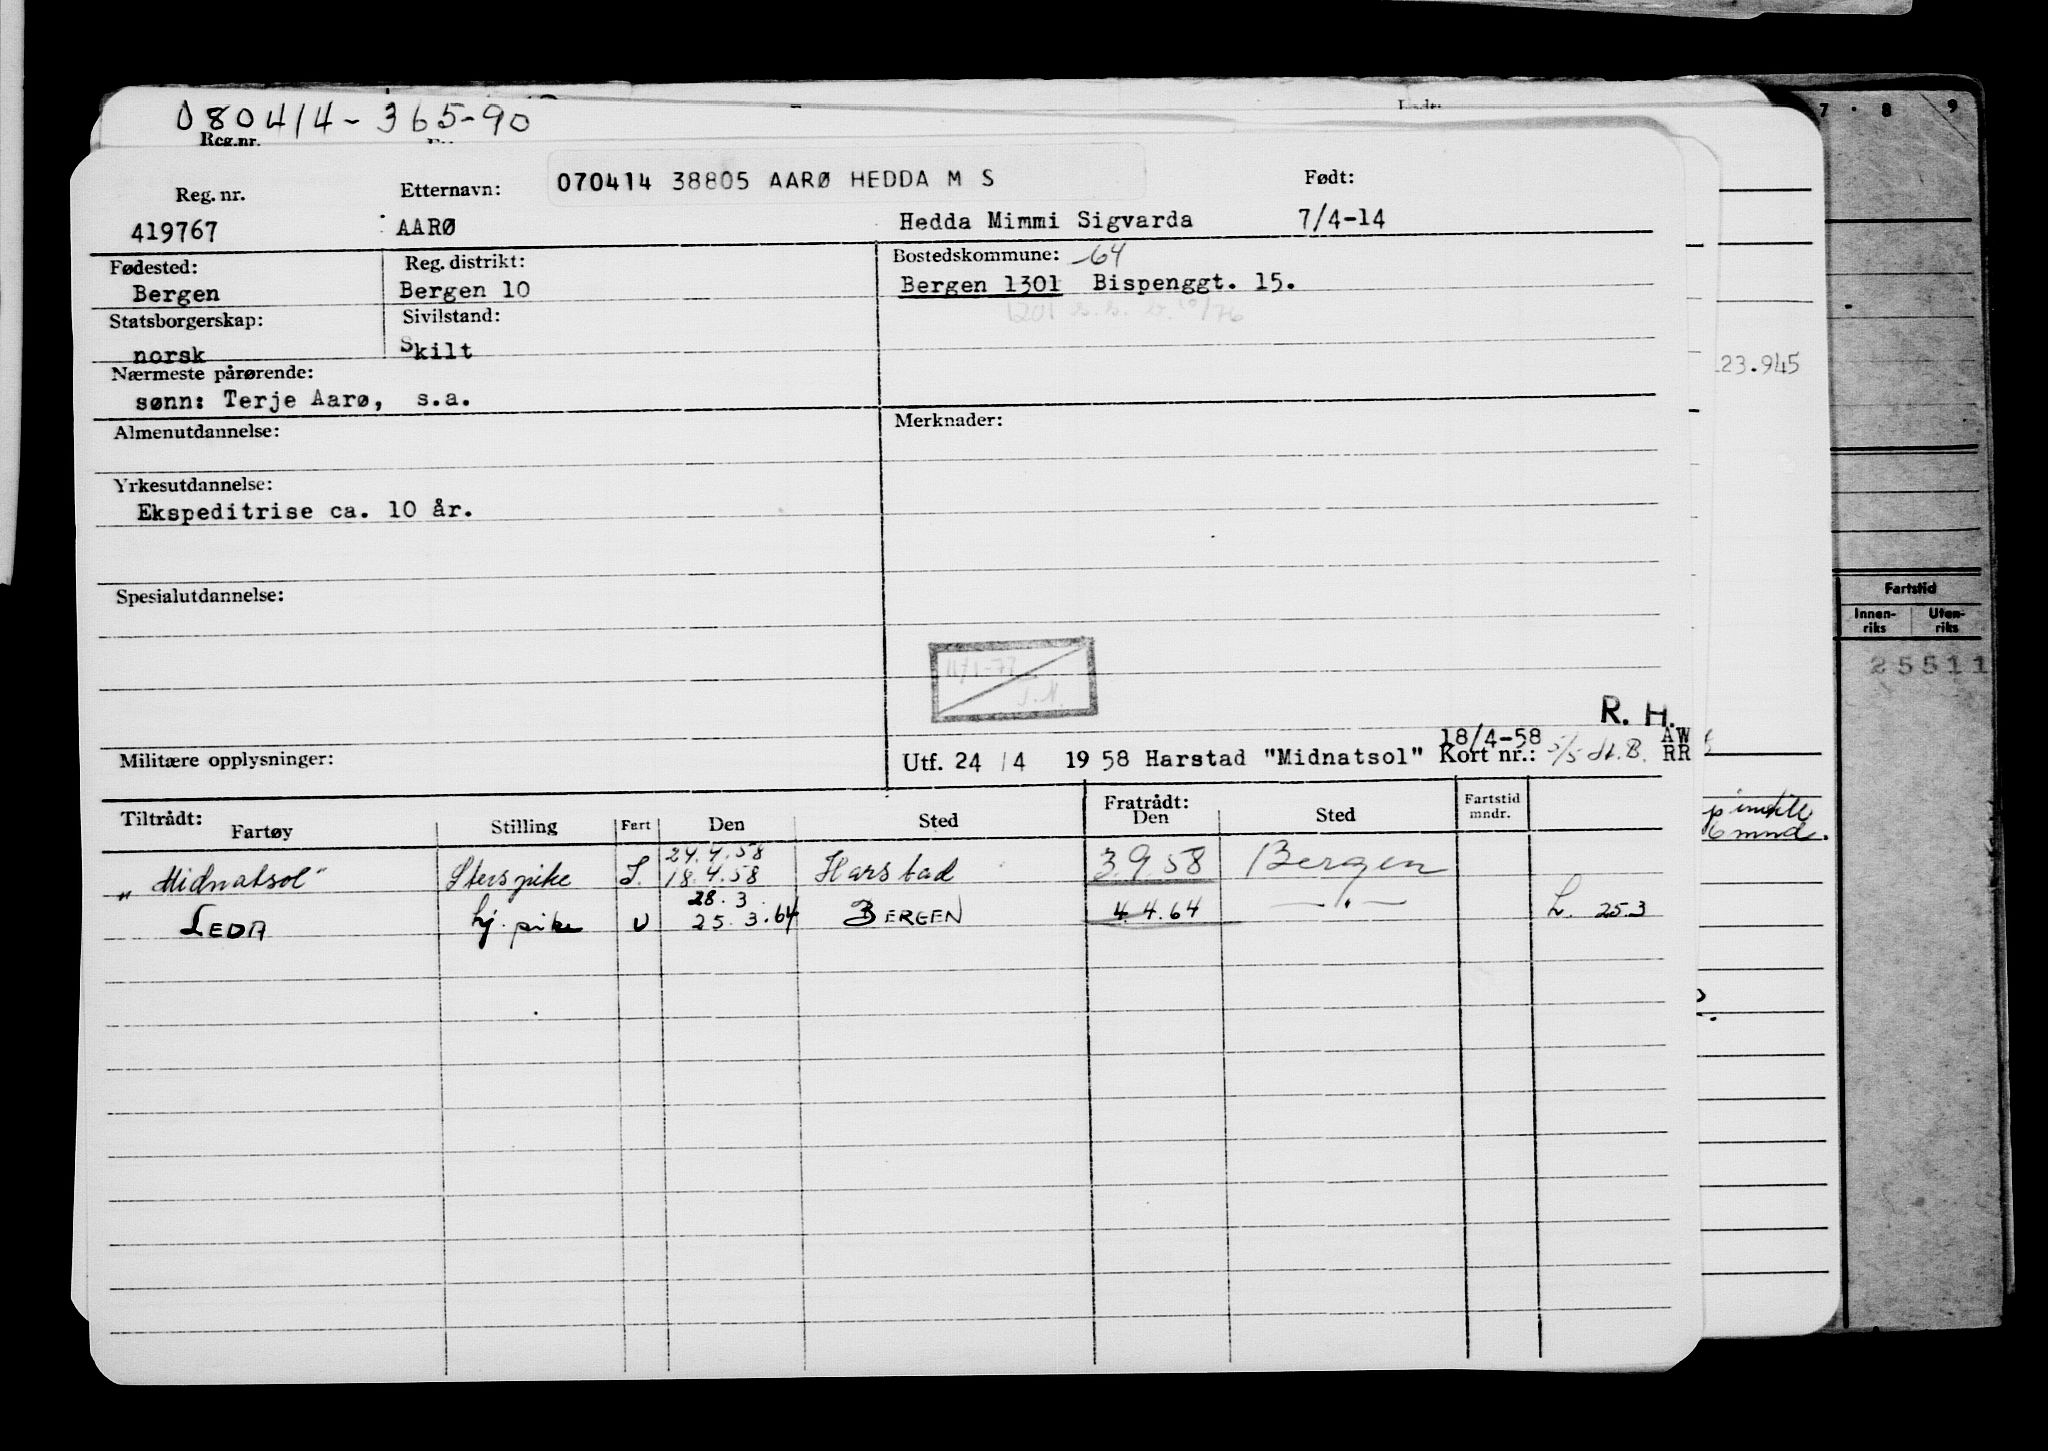 080414-365-90
Reg.nr.
7 . 8 9
070414 38805 AARØ HEDDA M S
Reg. nr. Etternavn: Født:
419767 AARØ Hedda Mimmi Sigvarda 7/4-14
Fødested: Reg. distrikt: Bostedskommune: -64
Bergen Bergen 10 Bergen 1301 Bispenggt. 15.
Statsborgerskap: Sivilstand:
norsk Skilt
Nærmeste pårørende: 23.945
sønn: Terje Aarø, s.a.
Almenutdannelse: Merknader:
Yrkesutdannelse:
Ekspeditrise ca. 10 år.
Spesialutdannelse:
Fartstid
Innen-riks Uten-riks
25511
R. H.
18/4-58 AW
Militære opplysninger: Utf. 24 /4 1958 Harstad "Midnatsol" Kort nr.: 5/5 St.B. RR
Tiltrådt: Fratrådt:
Fartøy Stilling Fart Den Sted Den Sted Fartstid mndr.
24.4.58
„Midnatsol" Sterspike I. 18.4.58 Harstad 3.9.58 Bergen
28.3.
LEDA hj. pike U 25.3.64 BERGEN 4.4.64 —"— L. 25.3